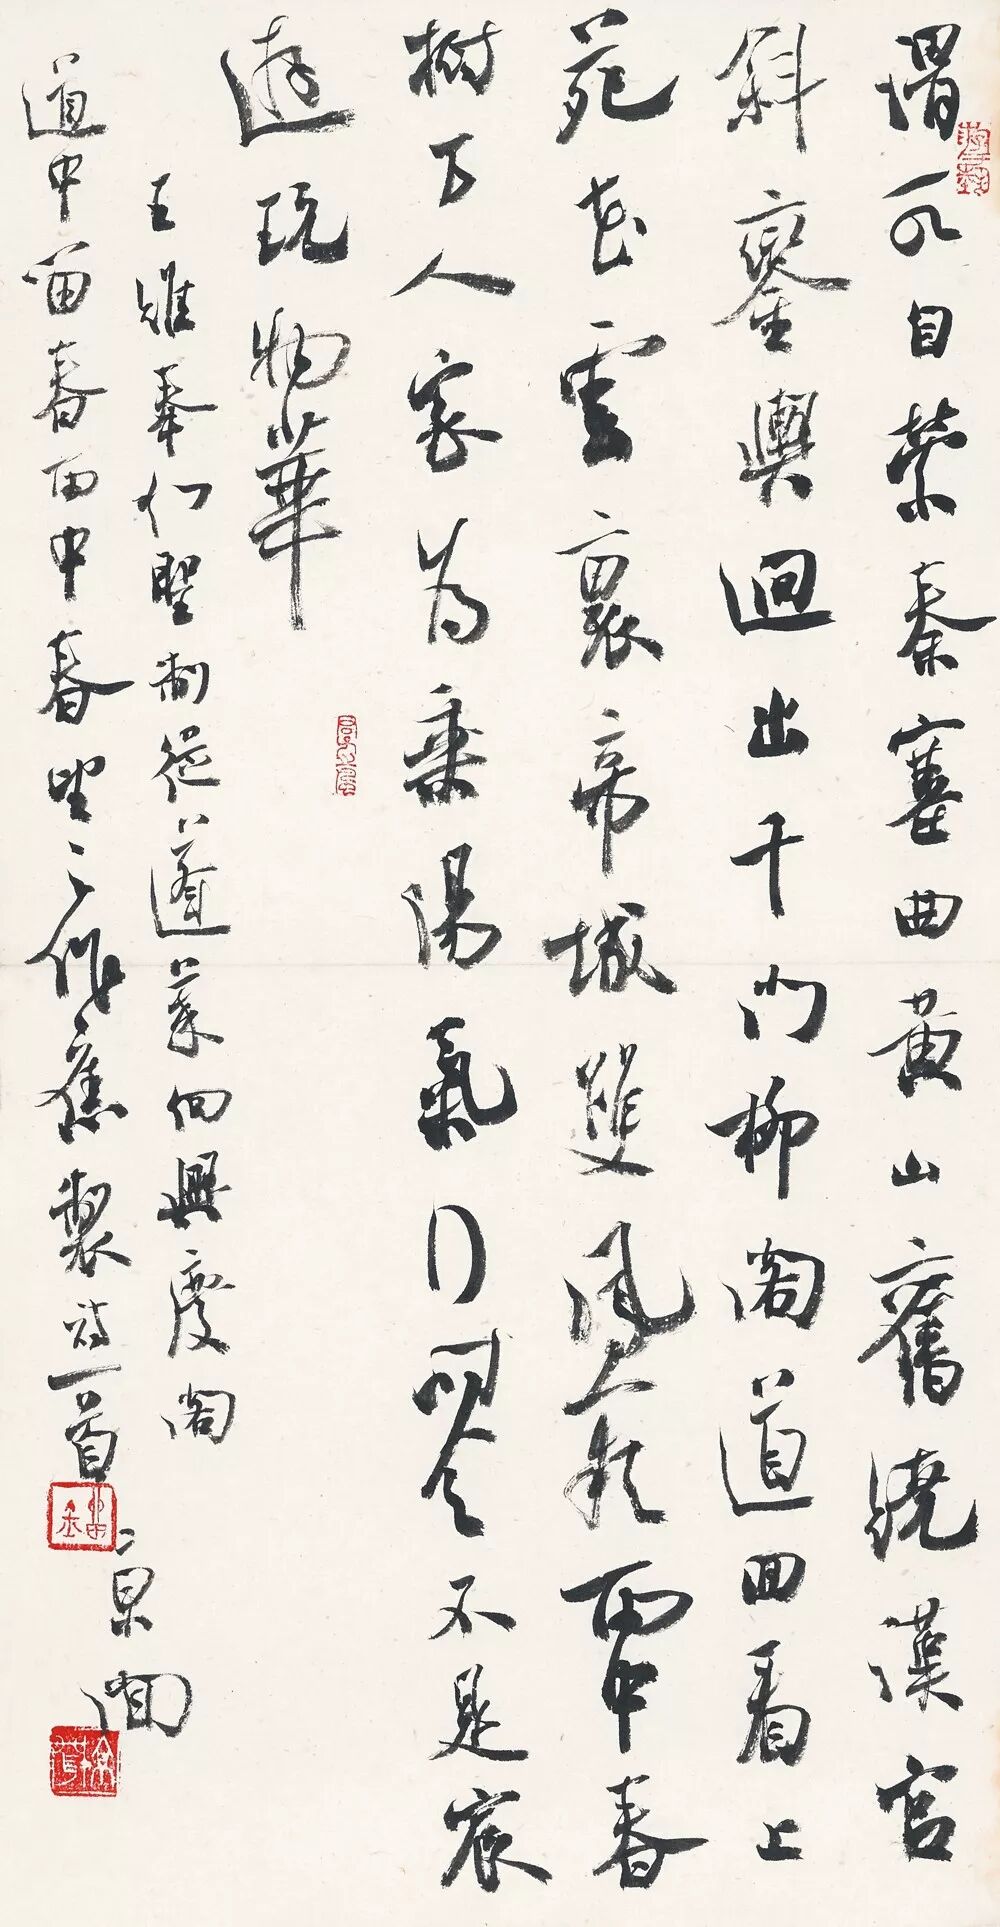 渭水自縈秦塞曲黃山舊繞漢宮
斜鑾輿迴出千門柳閣道回看上
苑花雲裏帝城雙鳳闕雨中春
樹万人家為乘陽氣行時令不是宸
遊玩物華
王維奉和聖制從蓬萊向興慶閣
道中留春雨中春望之作應製詩一首